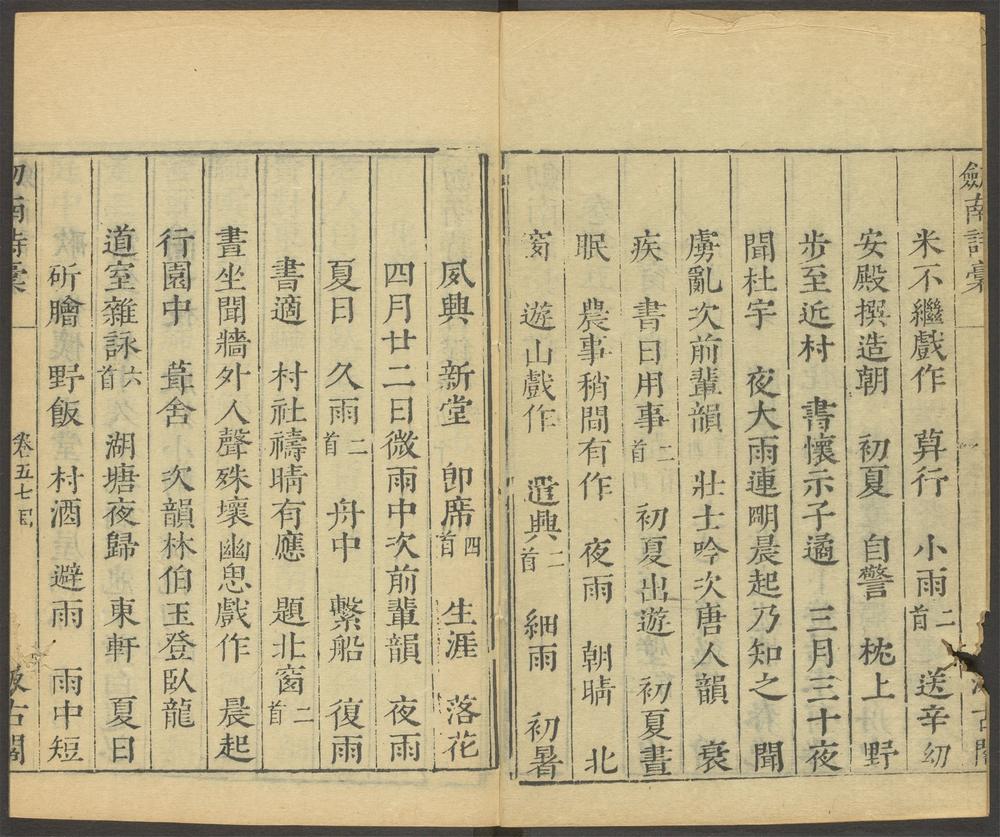 劔南詩稾
米不繼戲作 草行 小雨二首 送辛幼
安殿撰造朝 初夏 自警 枕上 野
步至近村 書懷示子遹 三月三十夜
聞杜宇 夜大雨連明晨起乃知之 聞
虜亂次前輩韻 壯士吟次唐人韻 衰
疾 書日用事二首 初夏出遊 初夏晝
眠 農事稍間有作 夜雨 朝晴 北
窗 遊山戲作 遣興二首 細雨 初暑
夙興 新堂 卽席四首 生涯 落花
四月廿二日微雨中次前輩韻 夜雨
夏日 久雨二首 舟中 繫船 復雨
書適 村社禱晴有應 題北窗二首
晝坐聞牆外人聲殊壞幽思戲作 晨起
行園中 葺舍 次韻林伯玉登臥龍
道室雜詠六首 湖塘夜歸 東軒 夏日
斫膾 野飯 村酒 避雨 雨中短
南詩稾 卷五七 汲古閣